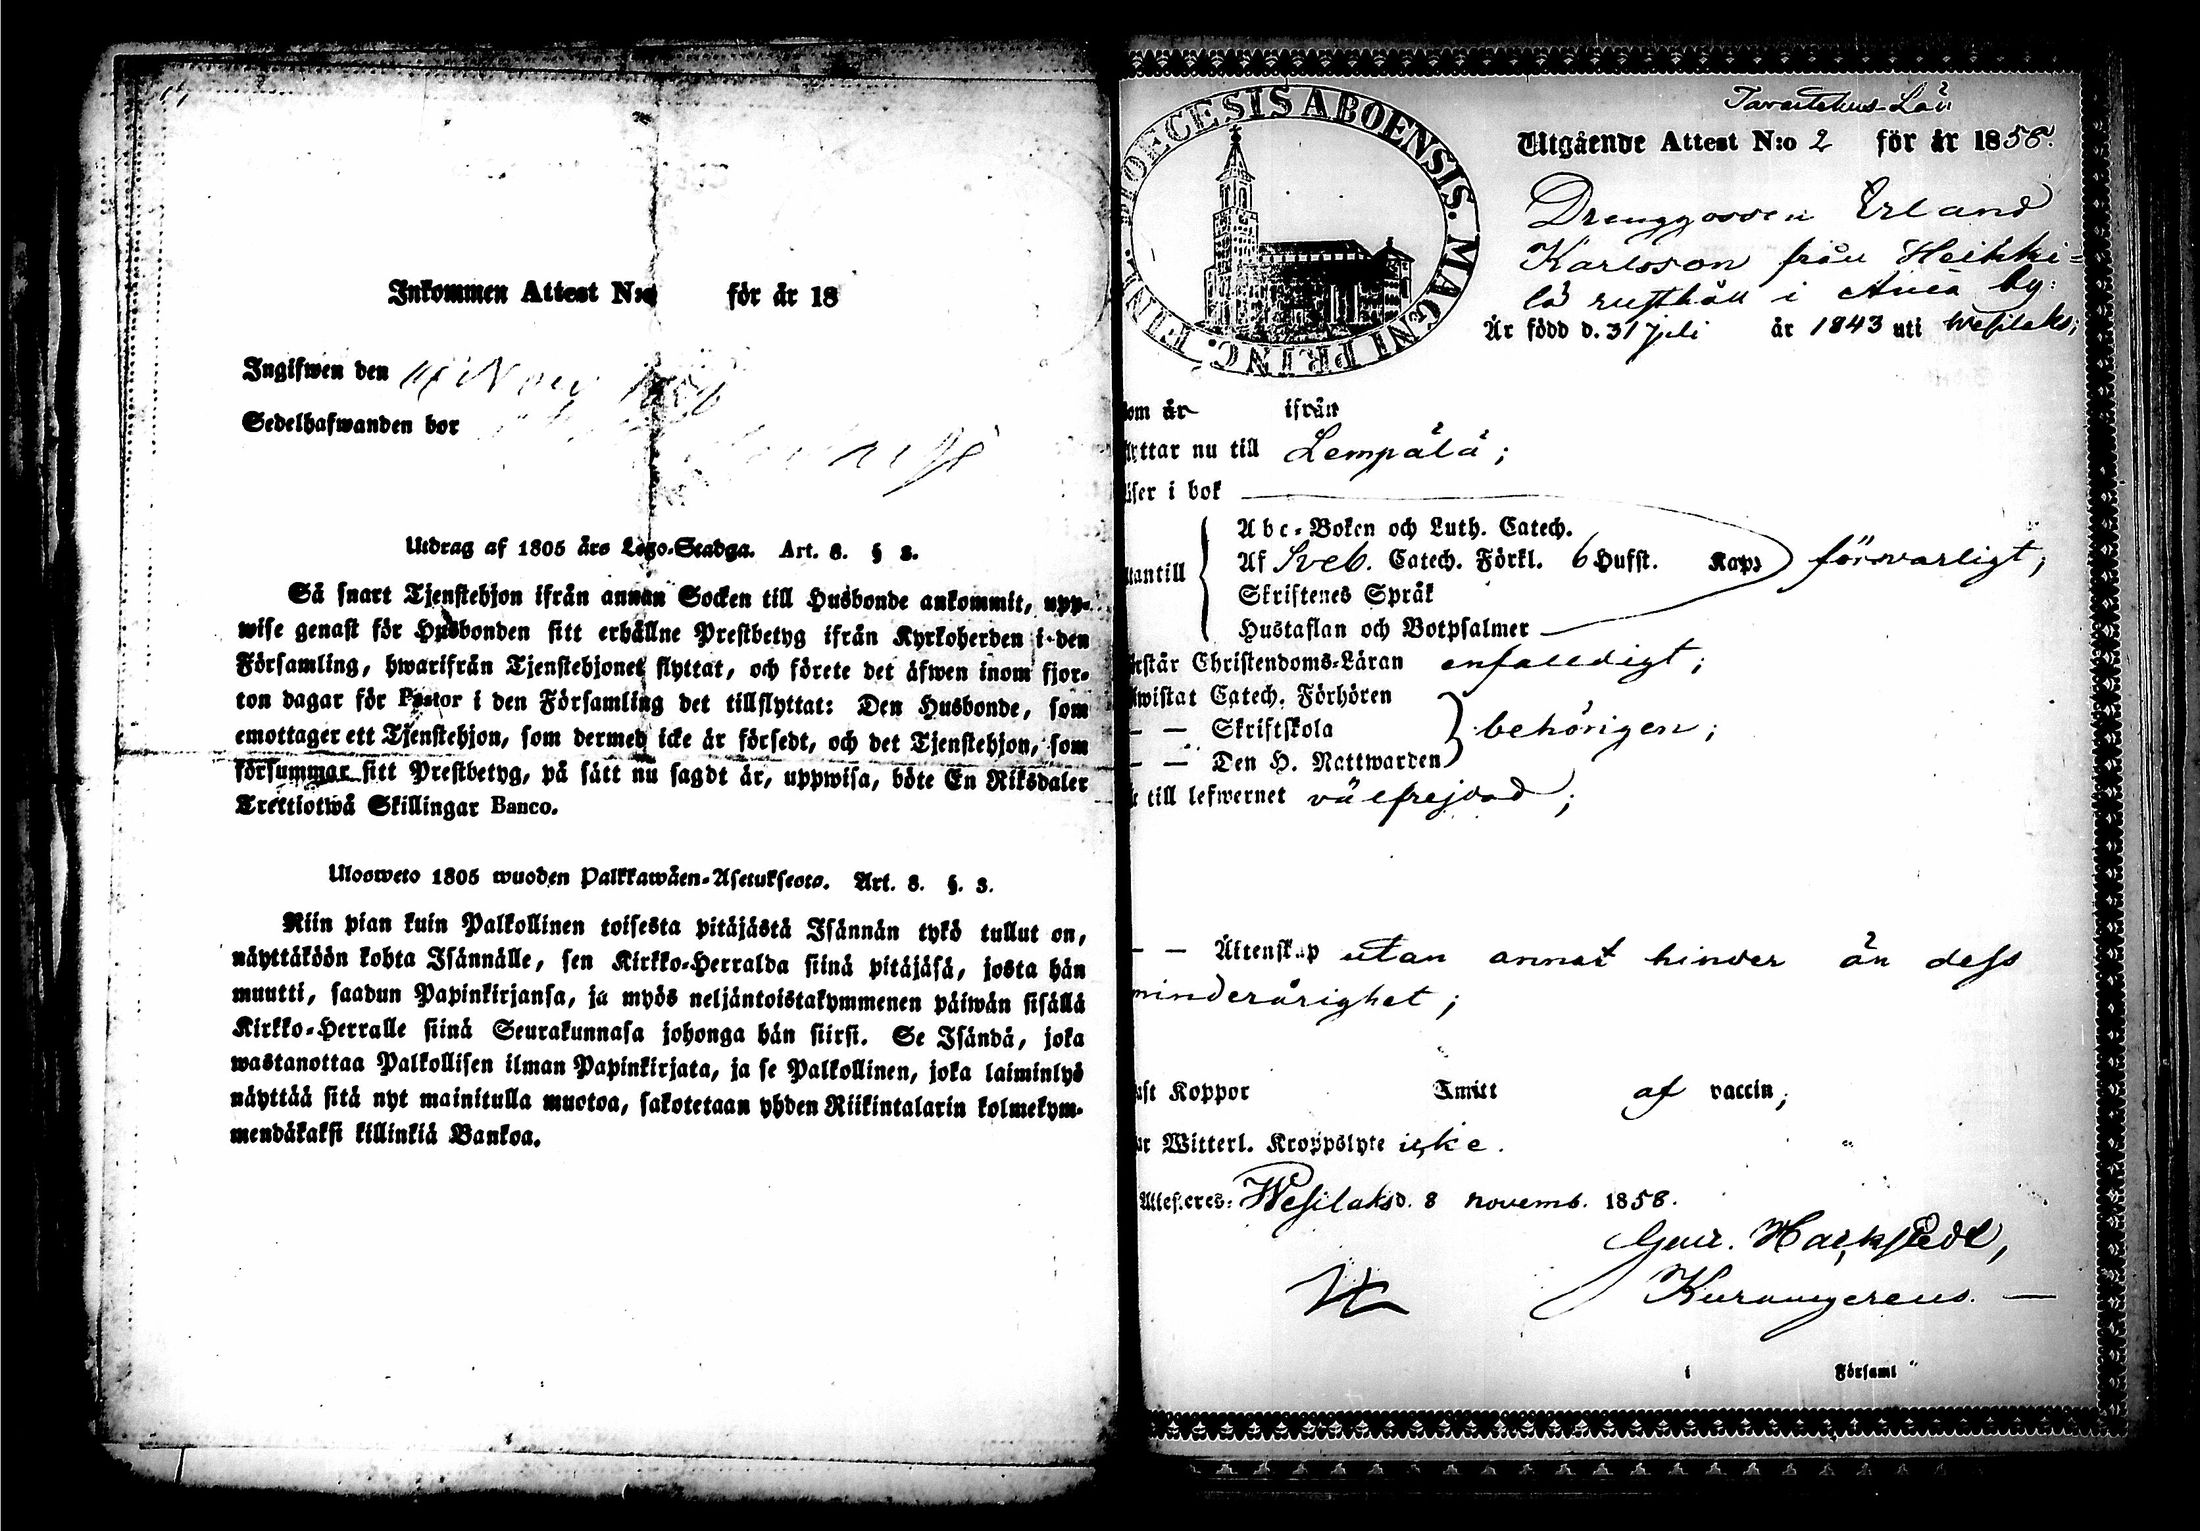 Inkommen Attest N:o för år 18
Ingifwen den 11 Nov 1858
Sedelhafwanden bor
Utdrag af 1805 års Lego-Stadga. Art. 8. § 8.
Så snart Tjenstehjon ifrån annan Socken till Husbonde ankommit, upp-
wise genast för Husbonden sitt erhållne Prestbetyg ifrån Kyrkoherden i den
Församling, hwarifrån Tjenstehjonet flyttat, och förete det äfwen inom fjor-
ton dagar för Pastor i den Församling det tillflyttat: Den Husbonde, som
emottager ett Tjenstehjon, som dermed icke är försedt, och det Tjenstehjon, som
försummar sitt Prestbetyg, på sätt nu sagdt är, uppwisa, böte En Riksdaler
Trettiotwå Skillingar Banco.
Ulosweto 1805 wuoden Palkkawäen-Asetuksesta. Art. 8. §. 3.
Niin pian kuin Palkollinen toisesta pitäjästä Isännän tykö tullut on,
näyttäköön kohta Isännälle, sen Kirkko-Herralda siinä pitäjäsä, josta hän
muutti, saadun Papinkirjansa, ja myös neljäntoistakymmenen päiwän sisällä
Kirkko-Herralle siinä Seurakunnasa johonga hän siirsi. Se Isändä, joka
wastanottaa Palkollisen ilman Papinkirjata, ja se Palkollinen, joka laiminlyö
näyttää sitä nyt mainitulla muotoa, sakotetaan yhden Riikintalarin kolmekym-
mendäkaksi killinkiä Bankoa.
DIOECESIS ABOENSIS. MAGNI PRINC. FINL.
Tavastehus Län
Utgående Attest N:o 2 för år 1858.
Drenggossen Erland
Karlsson från Heikki-
lä rusthåll i Avia by:
Är född d. 31 juli år 1843 uti Wesilaks;
om år ifrån
yttar nu till Lempälä;
äser i bok
Abc-Boken och Luth. Catech.
Af Sveb. Catech. Förkl. 6 Hufst. Kap: försvarligt;
utantill
Skriftenes Språk
Hustaflan och Botpsalmer
rstår Christendoms-Läran enfalldigt;
wistat Catech. Förhören
— — Skriftskola behörigen;
— — Den H. Nattwarden
r till lefwernet välfrejdad;
— — Äktenskap utan annat hinder än dess
minderårighet;
aft Koppor Smitt af vaccin;
ar Witterl. Kroppslyte icke.
Attesteres: Wesilaks d. 8 novemb. 1858.
i Församl